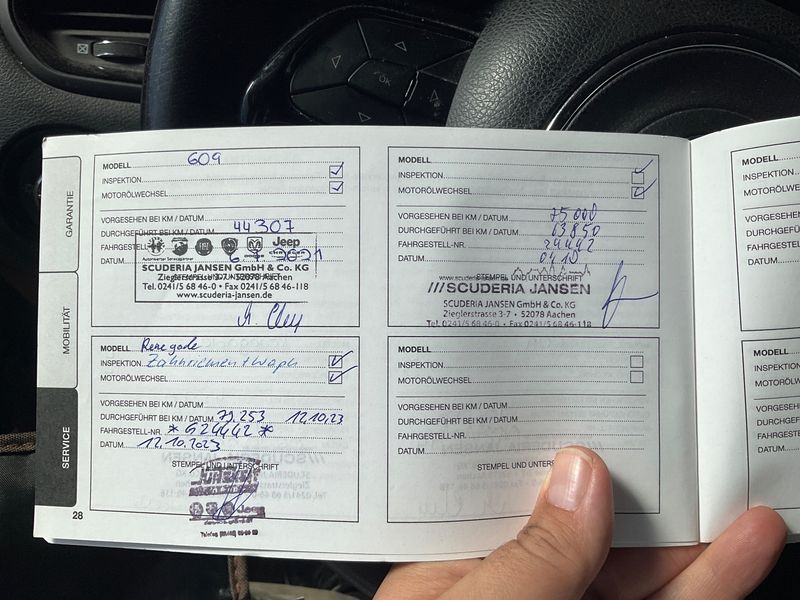 OK
GARANTIE
MOBILITÄT
SERVICE
MODELL 609
INSPEKTION
MOTORÖLWECHSEL
VORGESEHEN BEI KM / DATUM
DURCHGEFÜHRT BEI KM / DATUM 44307
FAHRGESTELL-NR.
Jeep
DATUM
SCUDERIA JANSEN GmbH & Co. KG
Zieglerstrasse 3-7 • 52078 Aachen
Tel. 0241/5 68 46-0 • Fax 0241/5 68 46-118
www.scuderia-jansen.de
MODELL
INSPEKTION
MOTORÖLWECHSEL
VORGESEHEN BEI KM / DATUM 75000
DURCHGEFÜHRT BEI KM / DATUM 63850
FAHRGESTELL-NR. 24442
DATUM
STEMPEL UND UNTERSCHRIFT
///SCUDERIA JANSEN
SCUDERIA JANSEN GmbH & Co. KG
Zieglerstrasse 3-7 • 52078 Aachen
Tel. 0241/5 68 46-0 • Fax 0241/5 68 46-118
MODELL Renegade
INSPEKTION
MOTORÖLWECHSEL
VORGESEHEN BEI KM / DATUM
DURCHGEFÜHRT BEI KM / DATUM 79.253 12.10.23
FAHRGESTELL-NR. *G24442*
DATUM 12.10.2023
STEMPEL UND UNTERSCHRIFT
Jeep
28
MODELL
INSPEKTION
MOTORÖLWECHSEL
VORGESEHEN BEI KM / DATUM
DURCHGEFÜHRT BEI KM / DATUM
FAHRGESTELL-NR.
DATUM
STEMPEL UND
MODELL
INSPEKTION
MOTORÖLWECHSEL
VORGESEHEN
DURCHGEFÜHR
FAHRGESTELL
DATUM
MODELL
INSPEKTION
MOTORÖLWE
VORGESEHE
DURCHGEFÜ
FAHRGESTE
DATUM